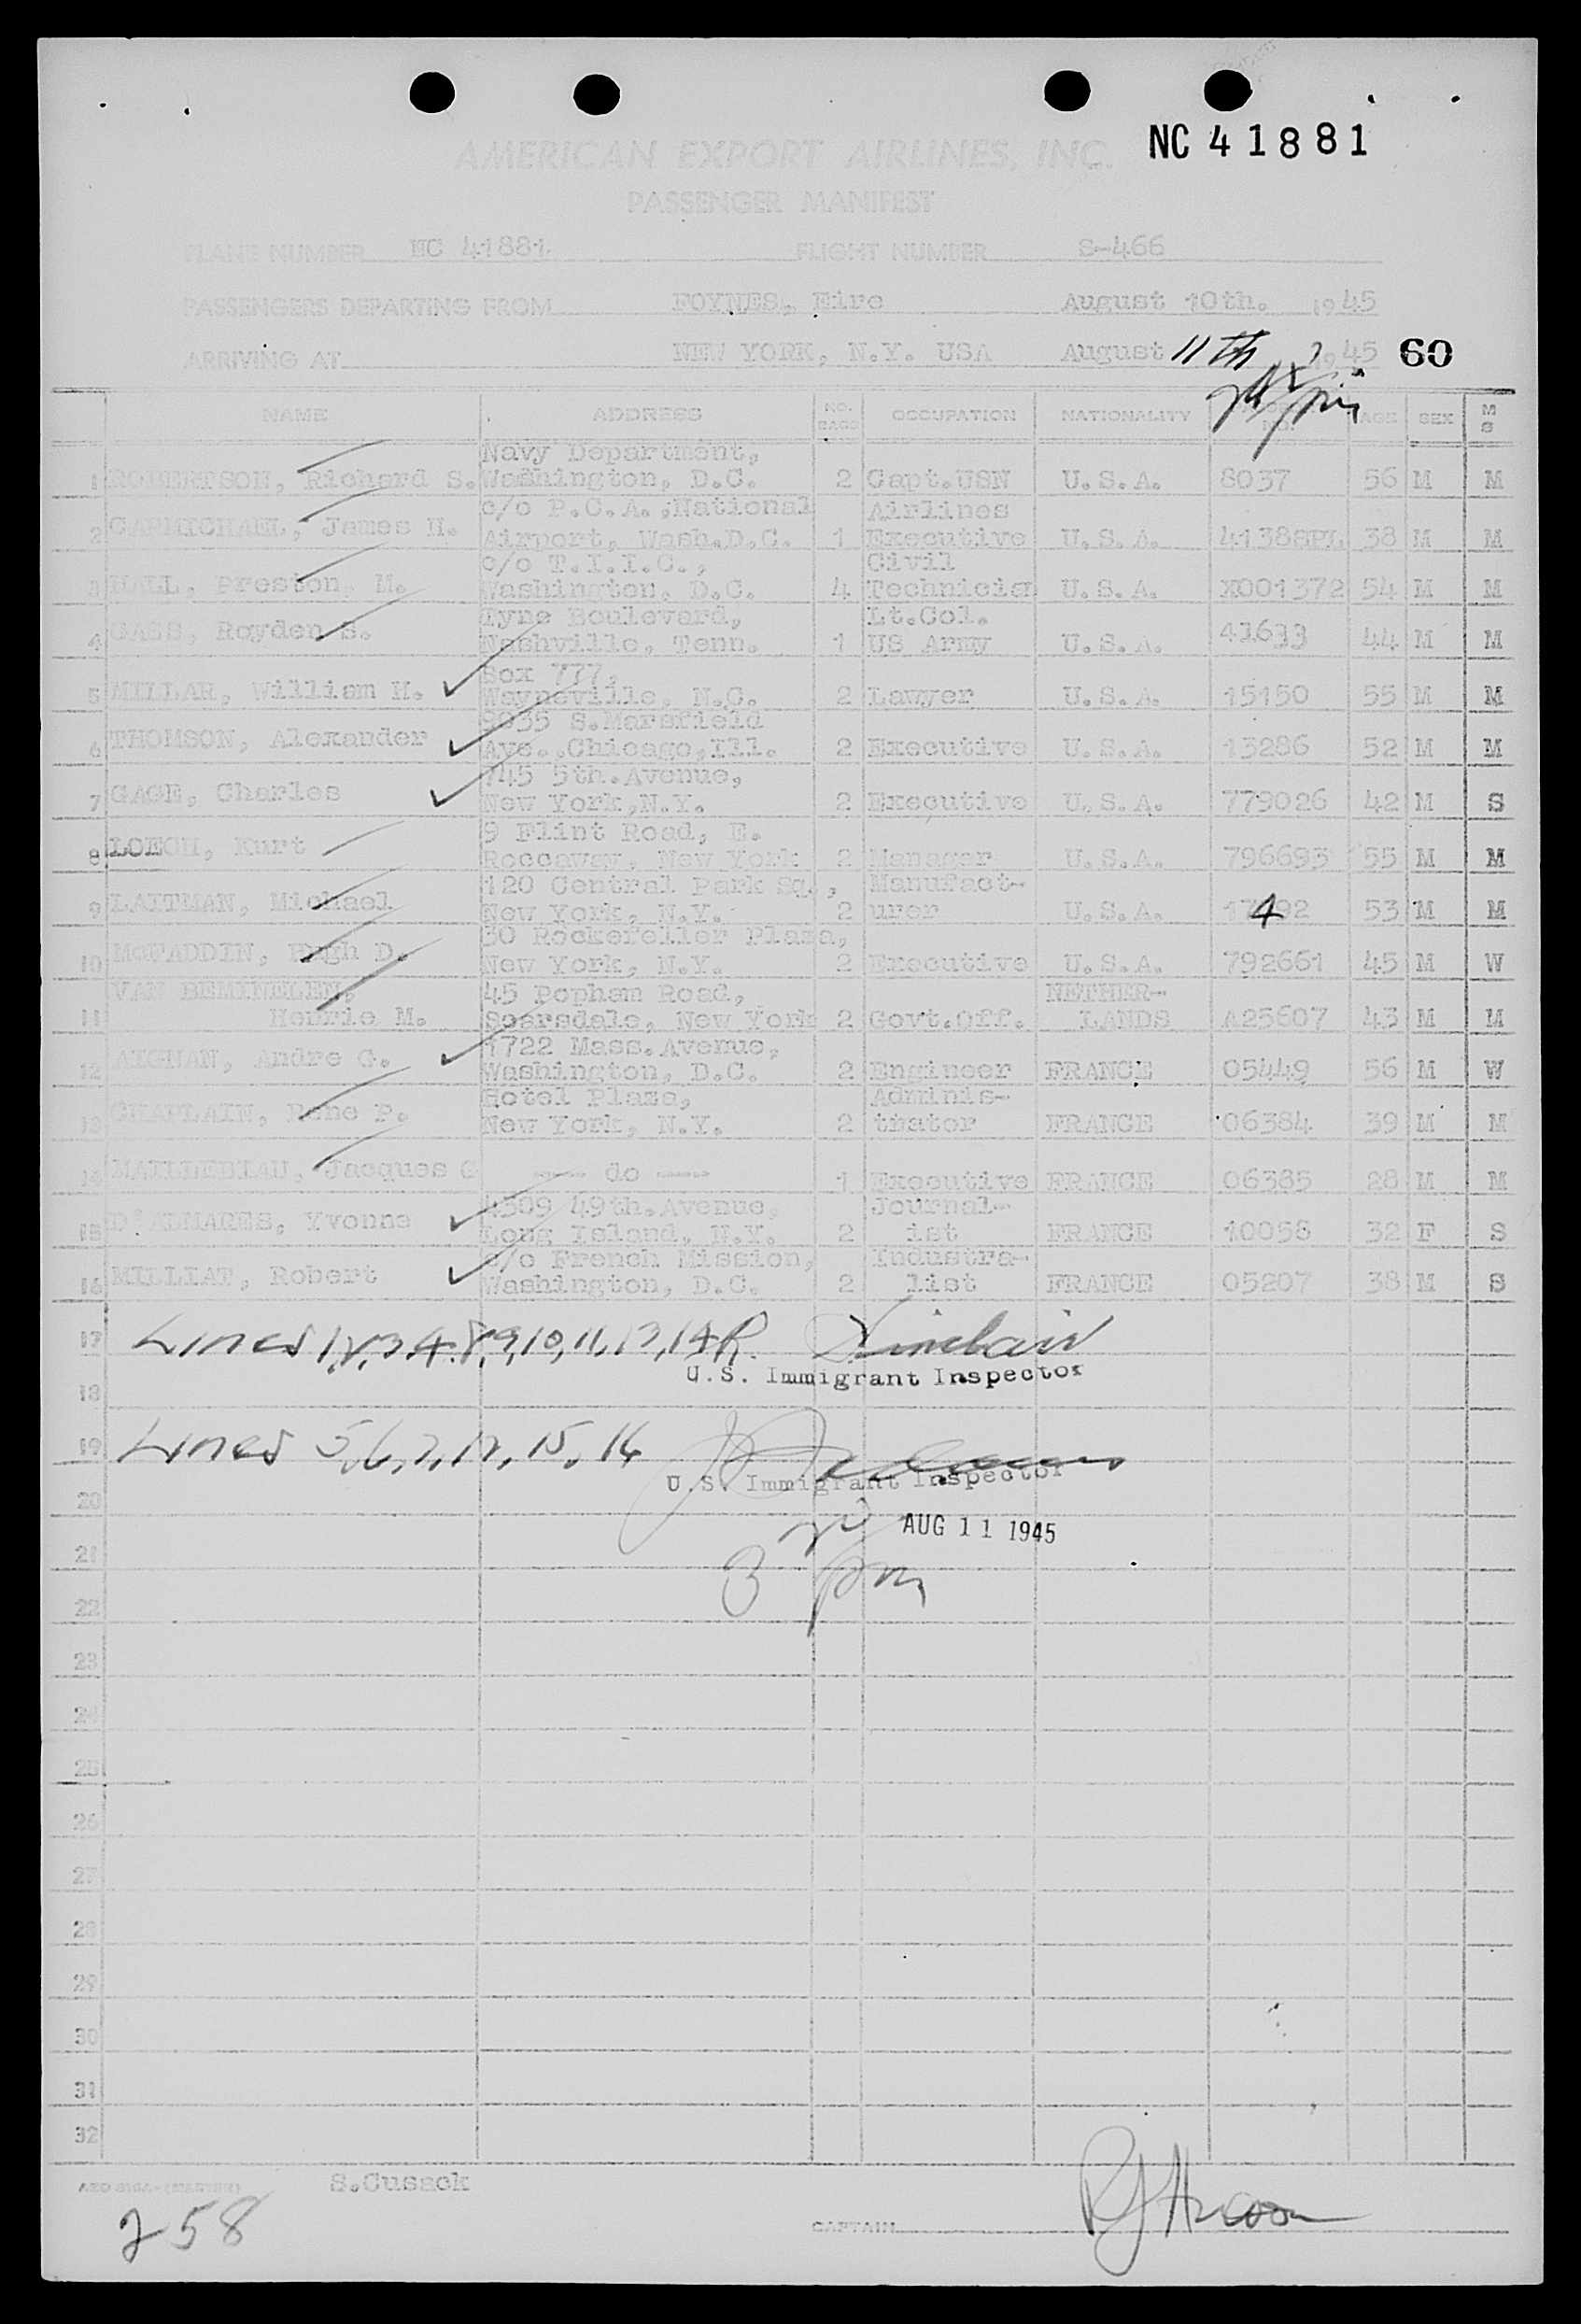 NC 41881
AMERICAN EXPORT AIRLINES, INC.
PASSENGER MANIFEST
PLANE NUMBER NC 41881 FLIGHT NUMBER S-466
PASSENGERS DEPARTING FROM FOYNES, Eire August 10th. 1945
ARRIVING AT NEW YORK, N.Y. USA August 11th 1945 60
NAME ADDRESS NO. BAGS OCCUPATION NATIONALITY NO. AGE SEX M S
Navy Department,
1 ROBERTSON, Richard S. Washington, D.C. 2 Capt.USN U.S.A. 8037 56 M M
c/o P.C.A.,National Airlines
2 CARMICHAEL, James H. Airport, Wash.D.C. 1 Executive U.S.A. 4138SPL 38 M M
c/o T.I.I.C., Civil
3 HALL, Preston, M. Washington, D.C. 4 Technician U.S.A. X001372 54 M M
Tyne Boulevard, Lt.Col.
4 GASS, Royden S. Nashville, Tenn. 1 US Army U.S.A. 41633 44 M M
Box 777,
5 MILLAR, William H. Waynesville, N.C. 2 Lawyer U.S.A. 15150 55 M M
9035 S.Marsfield
6 THOMSON, Alexander Ave.,Chicago,Ill. 2 Executive U.S.A. 13286 52 M M
745 5th.Avenue,
7 GAGE, Charles New York,N.Y. 2 Executive U.S.A. 779026 42 M S
9 Flint Road, E.
8 Kurt Roccaway, New York 2 Manager U.S.A. 796693 55 M M
120 Central Park Sq., Manufact-
9 LAITMAN, Michael New York, N.Y. 2 urer U.S.A. 53 M M
30 Rockefeller Plaza,
10 McFADDIN, Hugh D. New York, N.Y. 2 Executive U.S.A. 792661 45 M W
VAN 45 Popham Road, NETHER-
11 Henrie M. Scarsdale, New York 2 Govt.Off. LANDS A25607 43 M M
1722 Mass.Avenue,
12 AIGNAN, Andre G. Washington, D.C. 2 Engineer FRANCE 05449 56 M W
Hotel Plaza, Adminis-
13 CHAPLAIN, Rene P. New York, N.Y. 2 trator FRANCE 06384 39 M M
14 MAILLEBIAU, Jacques G --- do --- 1 Executive FRANCE 06385 28 M M
4309 49th.Avenue, Journal-
15 Yvonne Long Island, N.Y. 2 ist FRANCE 10058 32 F S
c/o French Mission, Industra-
16 MILLIAT, Robert Washington, D.C. 2 list FRANCE 05207 38 M S
17 Lines 1,2,3,4,8,9,10,11,13,14 R. Sinclair
U.S. Immigrant Inspector
18
19 Lines 5,6,7,12,15,16
U.S. Immigrant Inspector
20
AUG 11 1945
21
3 pm
22
23
24
25
26
27
28
29
30
31
32
S.Cusack
258
CAPTAIN